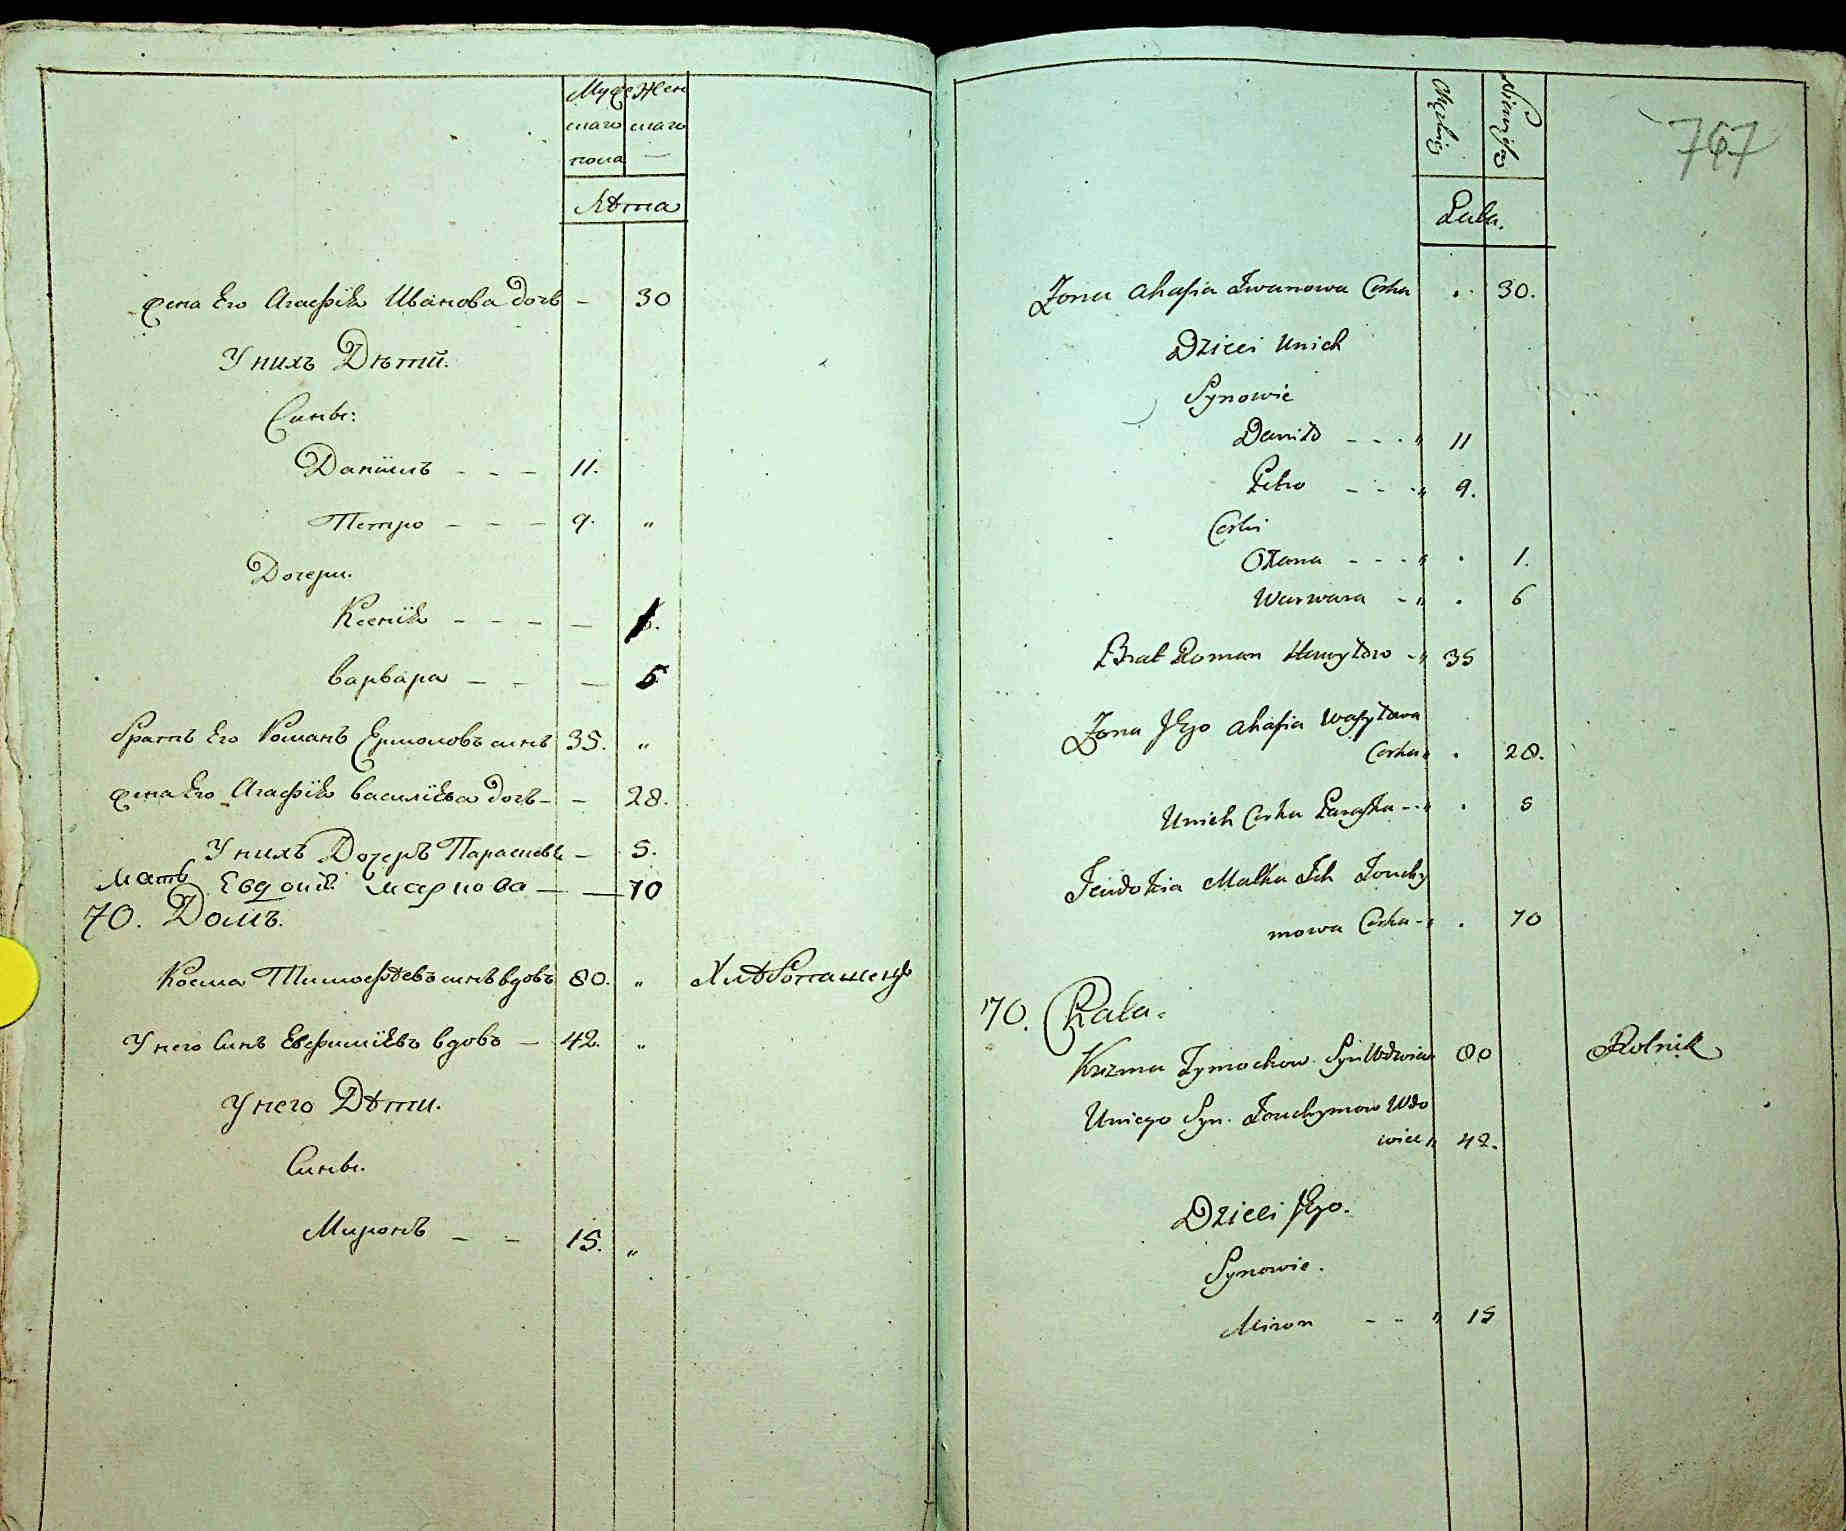 Мужескаго пола
Женскаго —
Лѣта
жена Его Агафія Иванова дочь – 30
У нихъ Дѣти.
Сины:
Даніилъ - - - 11.
Петро - - - 9. "
Дочери.
Ксенія - - - –
варвара - - –
братъ Его Романъ Ермоловъ синъ 35. "
жена Его Агафія василіева дочь - – 28.
У нихъ Дочеръ Параскева – 5.
мать Евдокія маркова — — 70
70. Домъ.
Косма Тимофѣевъ синъ вдовъ 80. " Хлѣбопашецъ
У него Синъ Евфиміевъ вдовъ – 42. "
У него Дѣти.
Сины.
Миронъ - - 15. "
767
Lata.
Żona Ahafia Iwanowa Corka . 30.
Dzieci Unich
Synowie
Daniło - - - " 11
Petro - - - " 9.
Corki
Oxana - - - " . 1.
Warwara - " . 6
Brat Roman - " 35
Żona Jego Ahafia Wasylowa
Corka " . 28.
Unich Corka Paraska - - " . 5
Jeudokia Matka Ich Jouchy
mowa Corka - " . 70
70. Chata.
Kuzma Tymochow Syn Wdwiec 80 Rolnik
Uniego Syn. Jouchymow Wdo
wiec " 42.
Dzieci Jego.
Synowie.
Miron - - " 15